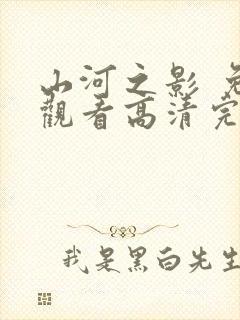 山河之影 免
觀看高清完
我是黑白先生